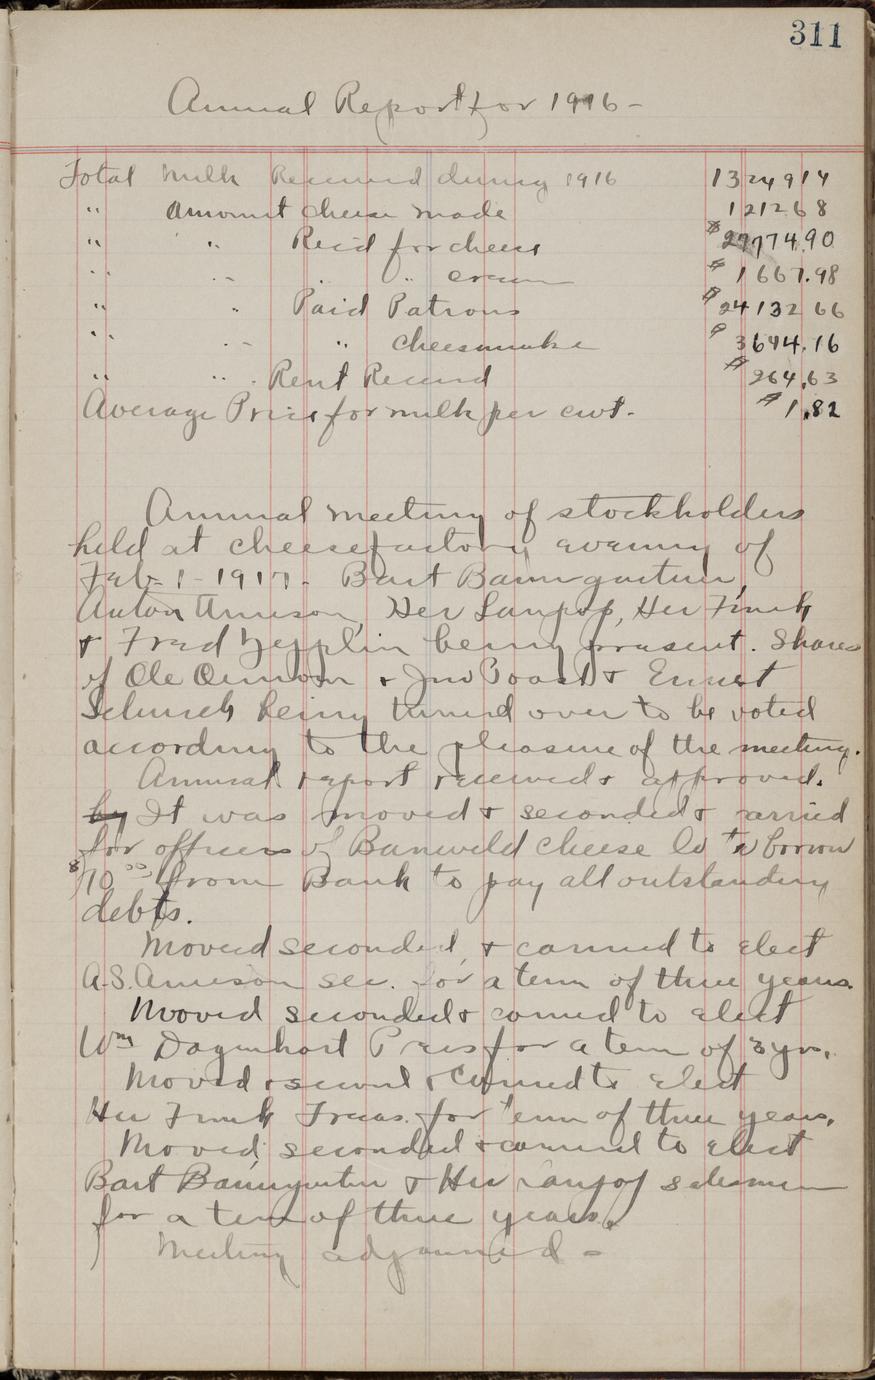 311
Annual Report for 1916 -
Total Milk Received during 1916 1324914
" Amount cheese made 121268
" " Recd for cheese $29774.90
" " " " cream $1667.98
" " Paid Patrons $24132 66
" " " cheesemake $3694.16
" " Rent Recevd $264.63
Average Price for milk per cwt. $1.82
Annual meeting of stockholders
held at cheesefactory evening of
Feb - 1 - 1917. Bart Baumgartner,
Anton Arneson, Her Langhof, Her Funk
& Fred Zepplin being present. Shares
of Ole & Jno Poast & Ernest
Schurch being turned over to be voted
according to the pleasure of the meeting.
Annual report received & approved.
by It was moved & seconded & carried
for officers of Baneveld Cheese Co to borrow
from Bank to pay all outstanding
debts.
Moved seconded, & carried to elect
A.S. Arneson sec. for a term of three years.
Mooved seconded & carried to elect
Wm Dagenhart Pres for a term of 3 yrs.
Moved & second & carried to elect
Her Funk Treas. for term of three years.
Moved seconded & carried to elect
Bart Baumgartner & Her Langhof salesmen
for a term of three years.
Meeting adjourned -